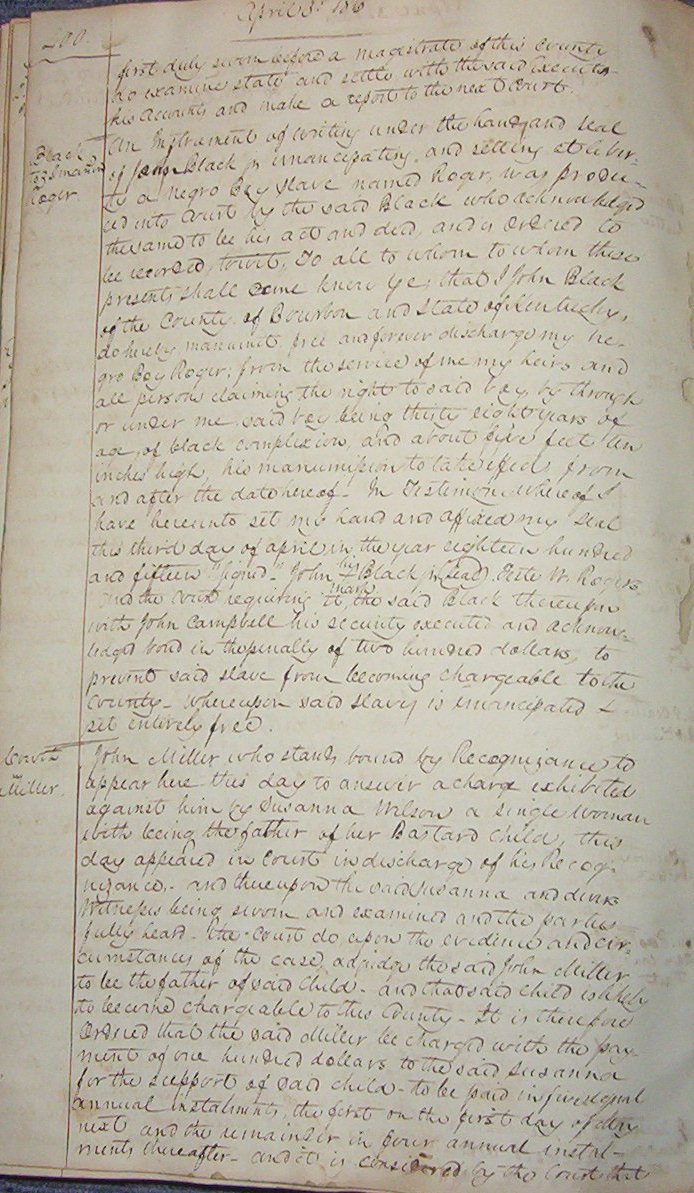 200.
April 3d 1815
first duly sworn before a magistrate of this County
do examine state and settle with the said Executor
his accounts and make a report to the next Court.
Black
to Emancn
Roger.
An Instrument of writing under the hand and seal
of John Black jr emancipating, and setting at liber-
ty a negro boy slave named Roger, was produ-
ced into Court by the said Black who acknowledged
the same to be his act and deed, and is ordered to
be recorded, towit, To all to whom to whom these
presents shall come know ye, that I John Black
of the County of Bourbon and State of Kentucky,
do hereby manumit free and forever discharge my ne-
gro Boy Roger; from the service of me my heirs and
all persons claiming the right to said boy, by through
or under me, said boy being thirty eight years of
age, of black complexion, and about five feet ten
inches high, his manumission to take effect from
and after the date hereof - In Testimony whereof I
have hereunto set my hand and affixed my seal
this third day of april in the year eighteen hundred
and fifteen "signd" John his + mark Black jr (seal) Teste W. Rogers
and the Court requiring it, the said Black thereupon
with John Campbell his security executed and acknow-
ledged bond in the penalty of two hundred dollars, to
prevent said slave from becoming chargeable to the
County - whereupon said slave is emancipated &
set entirely free.
Comth
vs
Miller.
John Miller who stands bound by Recognizance to
appear here this day to answer a charge exhibited
against him by Susanna Wilson a single woman
with being the father of her Bastard child, this
day appeared in Court in discharge of his Recog-
nizance, - and thereupon the said Susanna and divers
Witnesses being sworn and examined and the parties
fully heard - the Court do upon the evidence and cir-
cumstances of the case, adjudge the said John Miller
to be the father of said Child - and that said child is likely
to become chargeable to this County - It is therefore
Ordered that the said Miller be charged with the pay-
ment of one hundred dollars to the said Susanna
for the support of said child - to be paid in five equal
annual instalments, the first on the first day of May
next and the remainder in four annual instal-
ments thereafter - and it is considered by the Court that